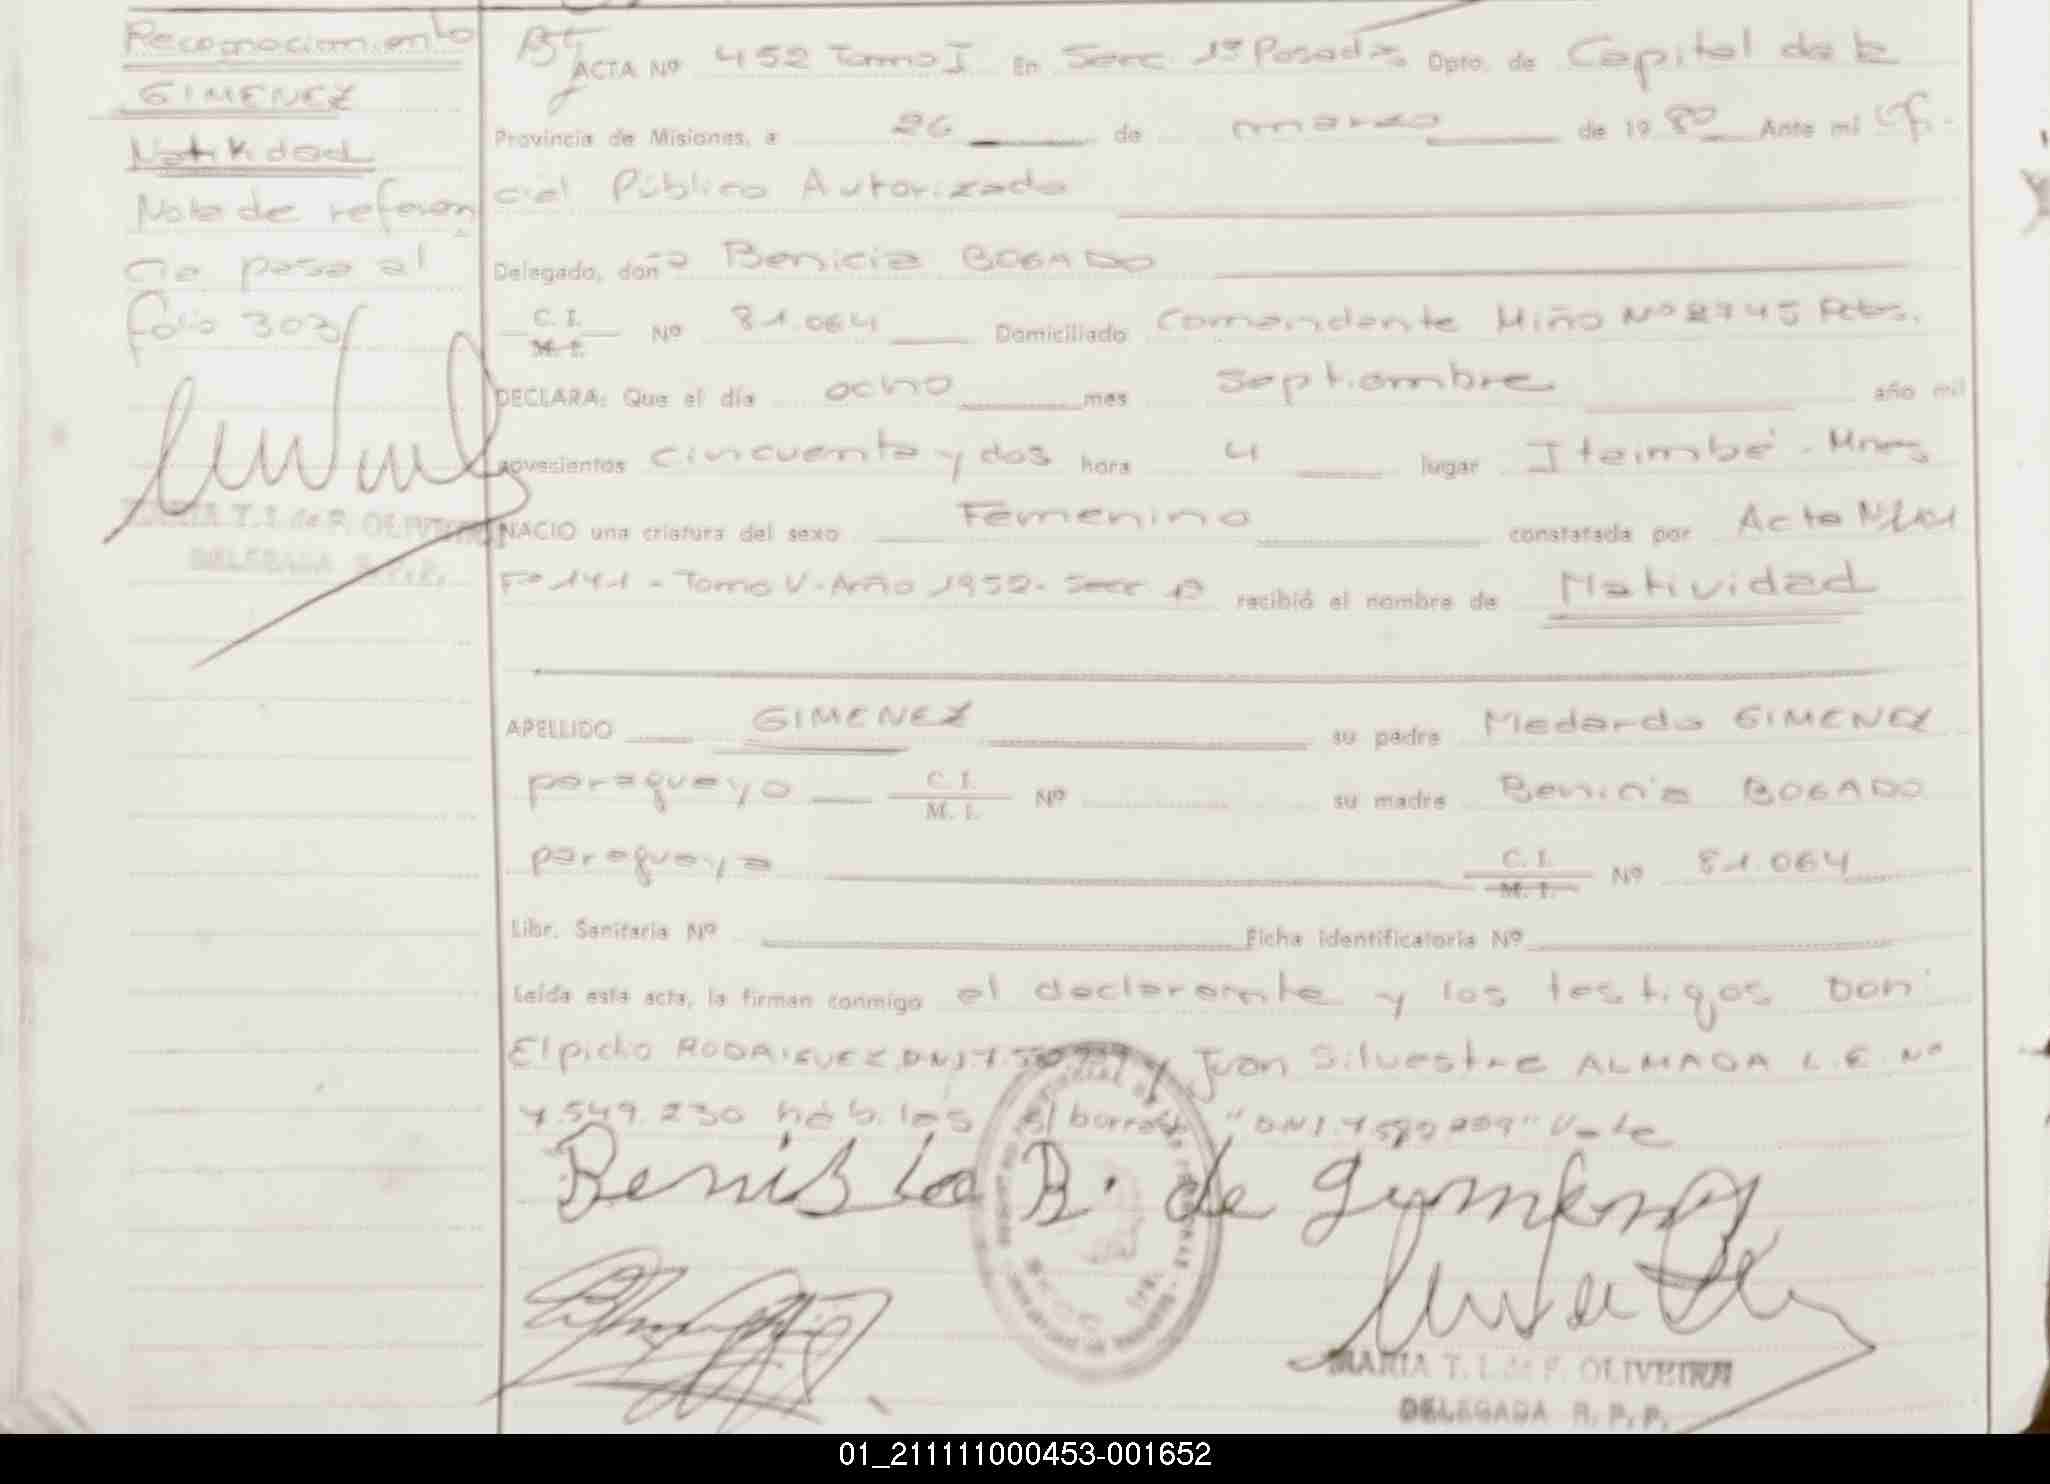 Reconocimiento
GIMENEZ
Natividad
Nota de referen
cia pasa al
folio 303
MARIA T. I. de P. OLIVEIRA
DELEGADA R. P. P.
ACTA Nº 452 Tomo I En Secc. 1ª Posadas Dpto. de Capital de la
Provincia de Misiones, a 26 de marzo de 1980 Ante mi Ofi-
cial Público Autorizado
Delegado, doña Benicia BOGADO
C. I.
M. I. Nº 81.064 Domiciliado Comandante Miño Nº 2745 Pdas.
DECLARA: Que el día ocho mes septiembre año mil
novecientos cincuenta y dos hora 4 lugar Itaimbé - Mnes
NACIO una criatura del sexo Femenino constatada por Acta
Fº 141 - Tomo V - Año 1952 - Secc recibió el nombre de Natividad
APELLIDO GIMENEZ su padre Medardo GIMENEZ
paraguayo C. I.
M. I. Nº su madre Benicia BOGADO
paraguaya C. I.
M. I. Nº 81.064
Libr. Sanitaria Nº Ficha identificatoria Nº
Leída esta acta, la firman conmigo el declarante y los testigos Don
Elpidio RODRIGUEZ DNI y Juan Silvestre ALMADA L.E. Nº
7.549.230 hábiles s/ borrado "DNI. " Vale
B. de Gimenez
MARIA T. I. de P. OLIVEIRA
DELEGADA R. P. P.
01_211111000453-001652